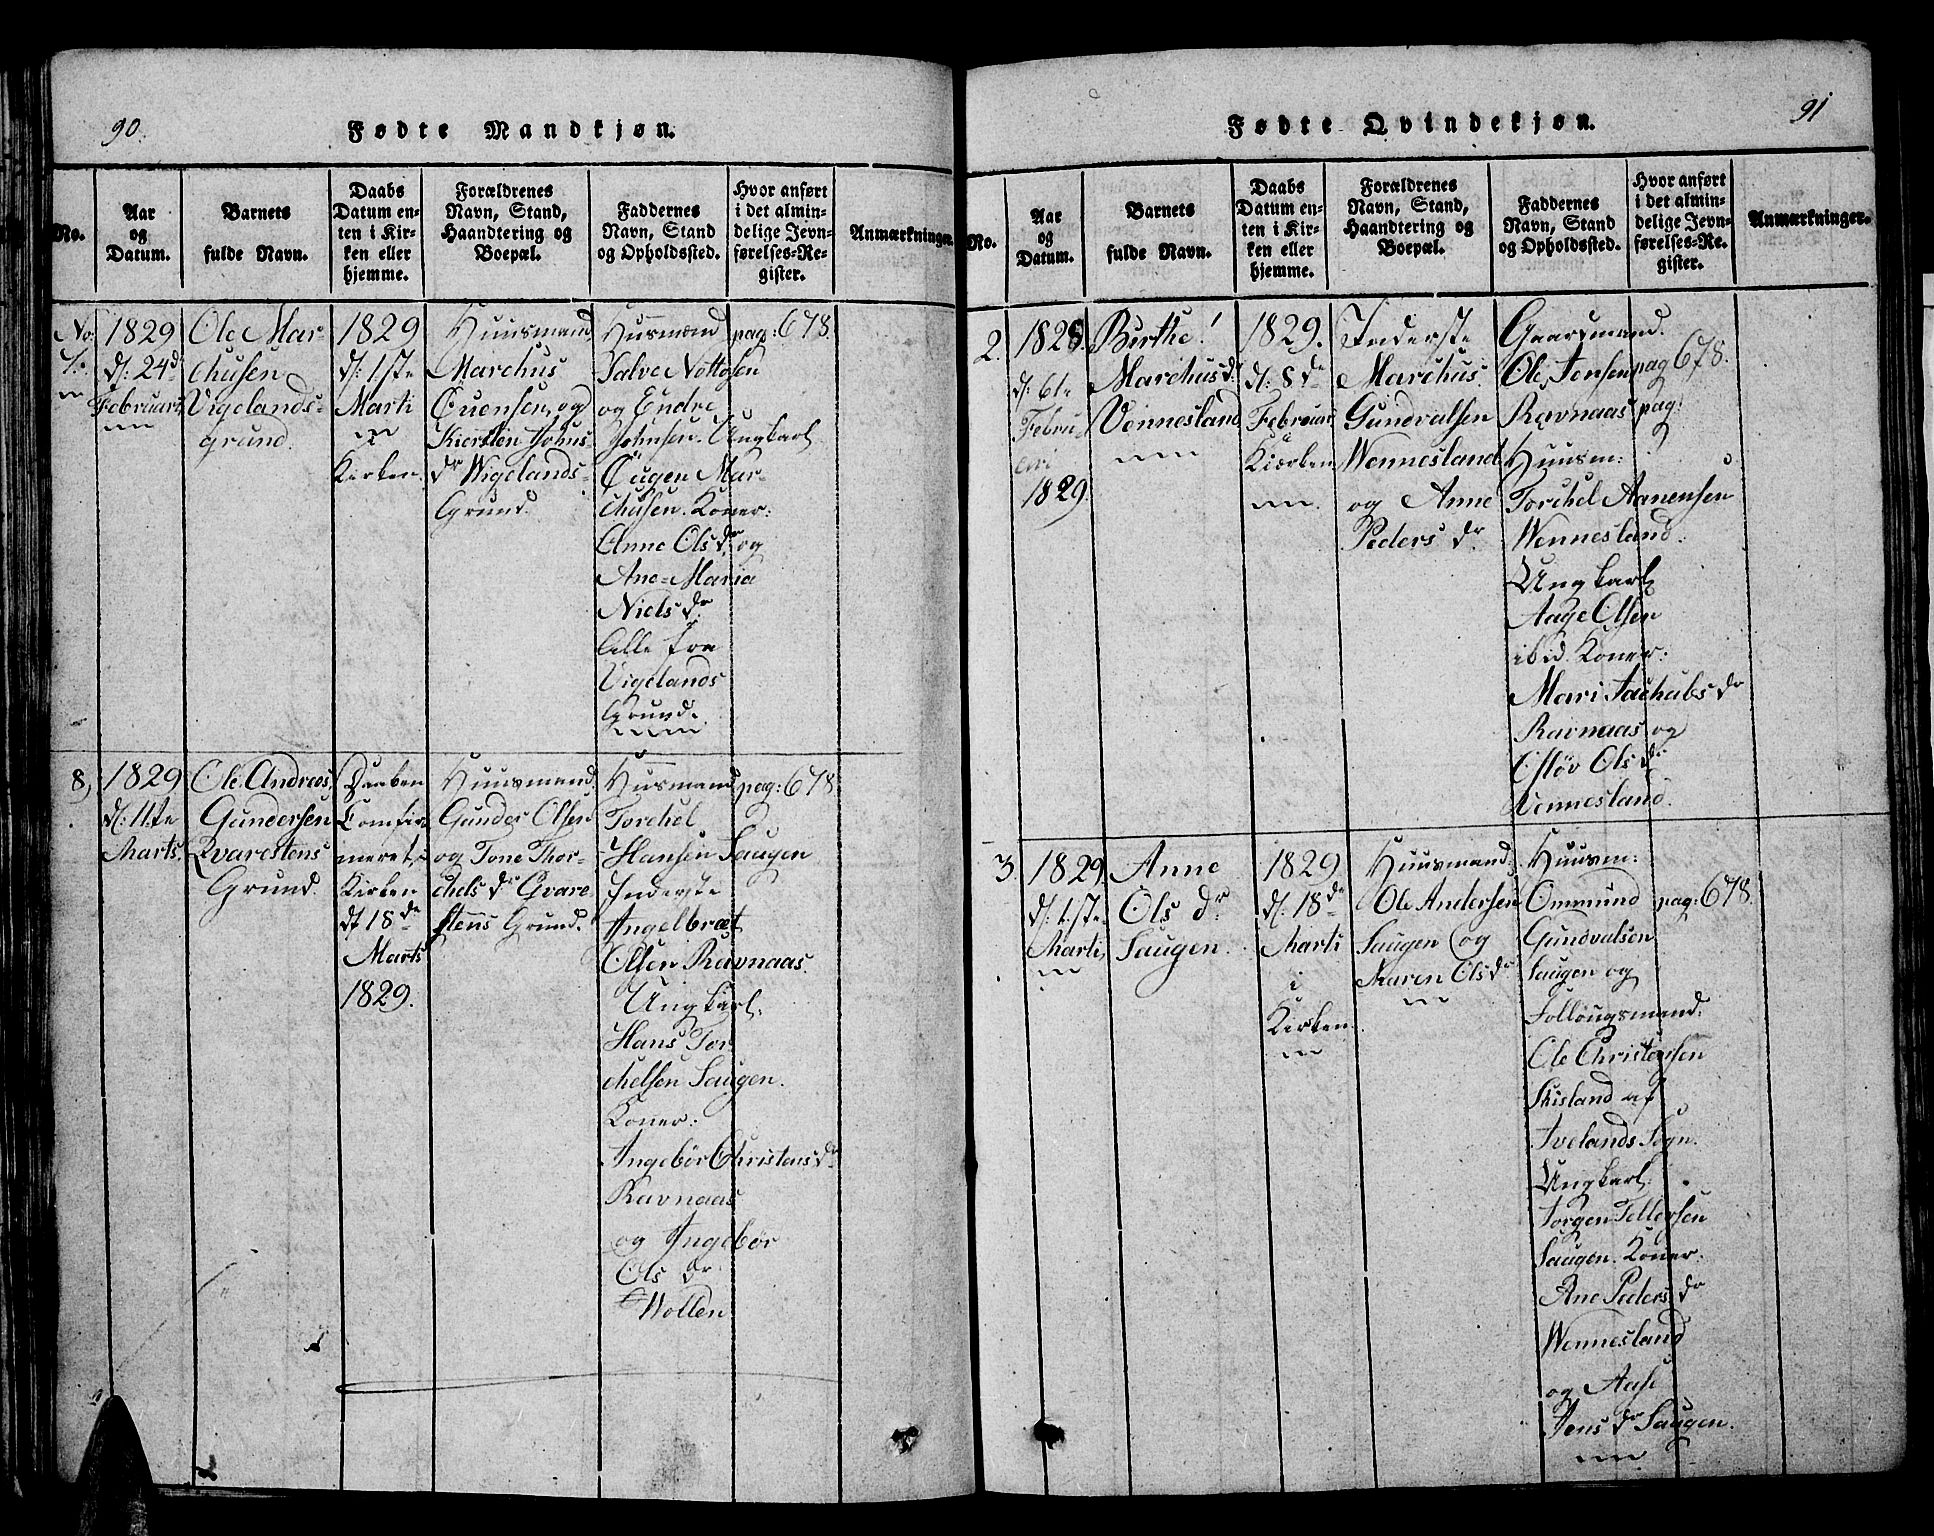 90.
Fødte Mandkjøn.
No.
Aar
og
Datum.
Barnets
fulde Navn.
Daabs
Datum en-
ten i Kir-
ken eller
hjemme.
Forældrenes
Navn, Stand,
Haandtering og
Boepæl.
Faddernes
Navn, Stand
og Opholdssted.
Hvor anført
i det almin-
delige Jevn-
førelses-Re-
gister.
Anmærkninger.
No.
7.
1829
d. 24d
Februari
Ole Mar-
chusen
Vigelands-
grund.
1829
d. 1ste
Marti
Kirken.
Huusmand
Marchus
Euensen, og
Kiersten Johns-
dr Wigelands-
Grund.
Husmænd
Talve Nottosen
og Endre
Johnsen. Ungkarl
Eugen Mar-
chusen. Koner:
Anne Ols dr og
Ane-Maria
Niels dr
Alle fra
Vigelands
Grund.
pag: 678.
8,
1829
d. 11te
Marts.
Ole Andreas
Gundersen
Qvarestens
Grund.
Daaben
Comfir
meret, i
Kirken
dt 18de
Marts
1829.
Huusmand.
Gunder Olsen
og Tone Thor-
chels dr Qvare
stens Grund.
Husmand
Torchel
Hansen Saugen
Inderste
Ingelbræt
Olsen Ravnaas.
Ungkarl.
Hans Tor
chelsen Saugen.
Koner:
Ingebør Christens dr
Ravnaas
og Ingebør
Ols dr
Wollen
pag: 678
91
Fødte Qvindekjøn.
No.
Aar
og
Datum.
Barnets
fulde Navn.
Daabs
Datum en-
ten i Kir-
ken eller
hjemme.
Forældrenes
Navn, Stand,
Haandtering og
Boepæl.
Faddernes
Navn, Stand
og Opholdssted.
Hvor anført
i det almin-
delige Jevn-
førelses-Re-
gister.
Anmærkninger.
2.
1828.
d. 6te
Febru-
ari
1829
Birthe!
Marchus dr
Vennesland
1829.
d. 8de
Februar
Kiærken
Inderste
Marchus
Gundvalsen
Wennesland
og Anne
Peders dr
Gaardmand.
Ole Jensen
Ravnaas
Huusm:
Torchel Aanensen
Wennesland.
Ungkarl
Aage Olsen
ibid. Koner:
Mari Jachubs dr
Ravnaas og
Osløv Ols dr
Vennesland.
pag 678.
pag:
3
1829.
d. 1ste
Marti,
Anne
Ols dr
Saugen.
1829
d. 18de
Marti
i
Kirken.
Huusmand
Ole Andersen
Saugen og
Maren Ols dr
Huusm:
Ommund
Gundvalsen
Saugen og
Follougsmand.
Ole Christensen
Skisland af
Ivelands Sogn.
Ungkarl.
Jørgen Tellefsen
Saugen. Koner.
Ane Peders dr
Wennesland
og Aase
Jens dr Saugen.
pag: 678.